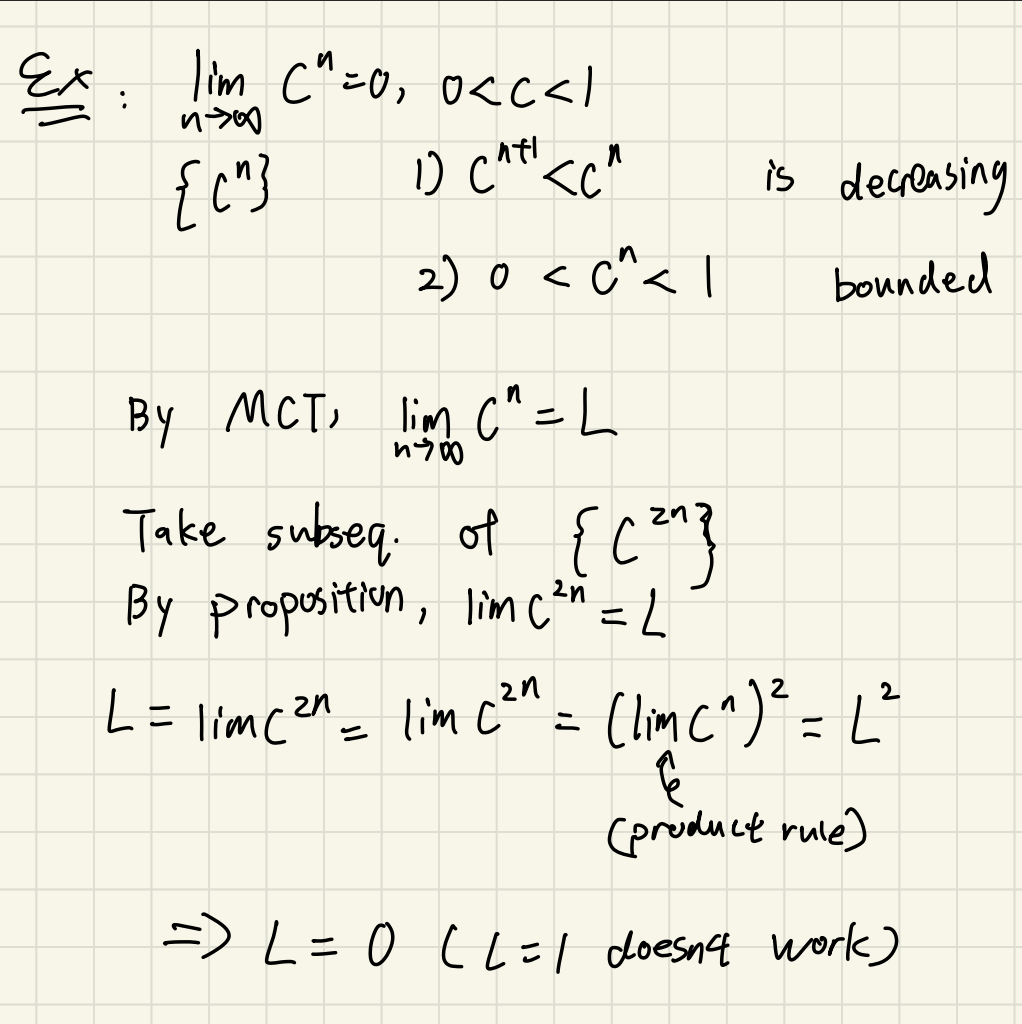 Ex : lim n→∞ Cⁿ = 0, 0 < c < 1
{Cⁿ} 1) Cⁿ⁺¹ < cⁿ is decreasing
2) 0 < Cⁿ < 1 bounded
By MCT, lim n→∞ Cⁿ = L
Take subseq. of {C²ⁿ}
By proposition, lim C²ⁿ = L
L = lim C²ⁿ = lim C²ⁿ = (lim Cⁿ)² = L²
(product rule)
=> L = 0 (L=1 doesnt work)